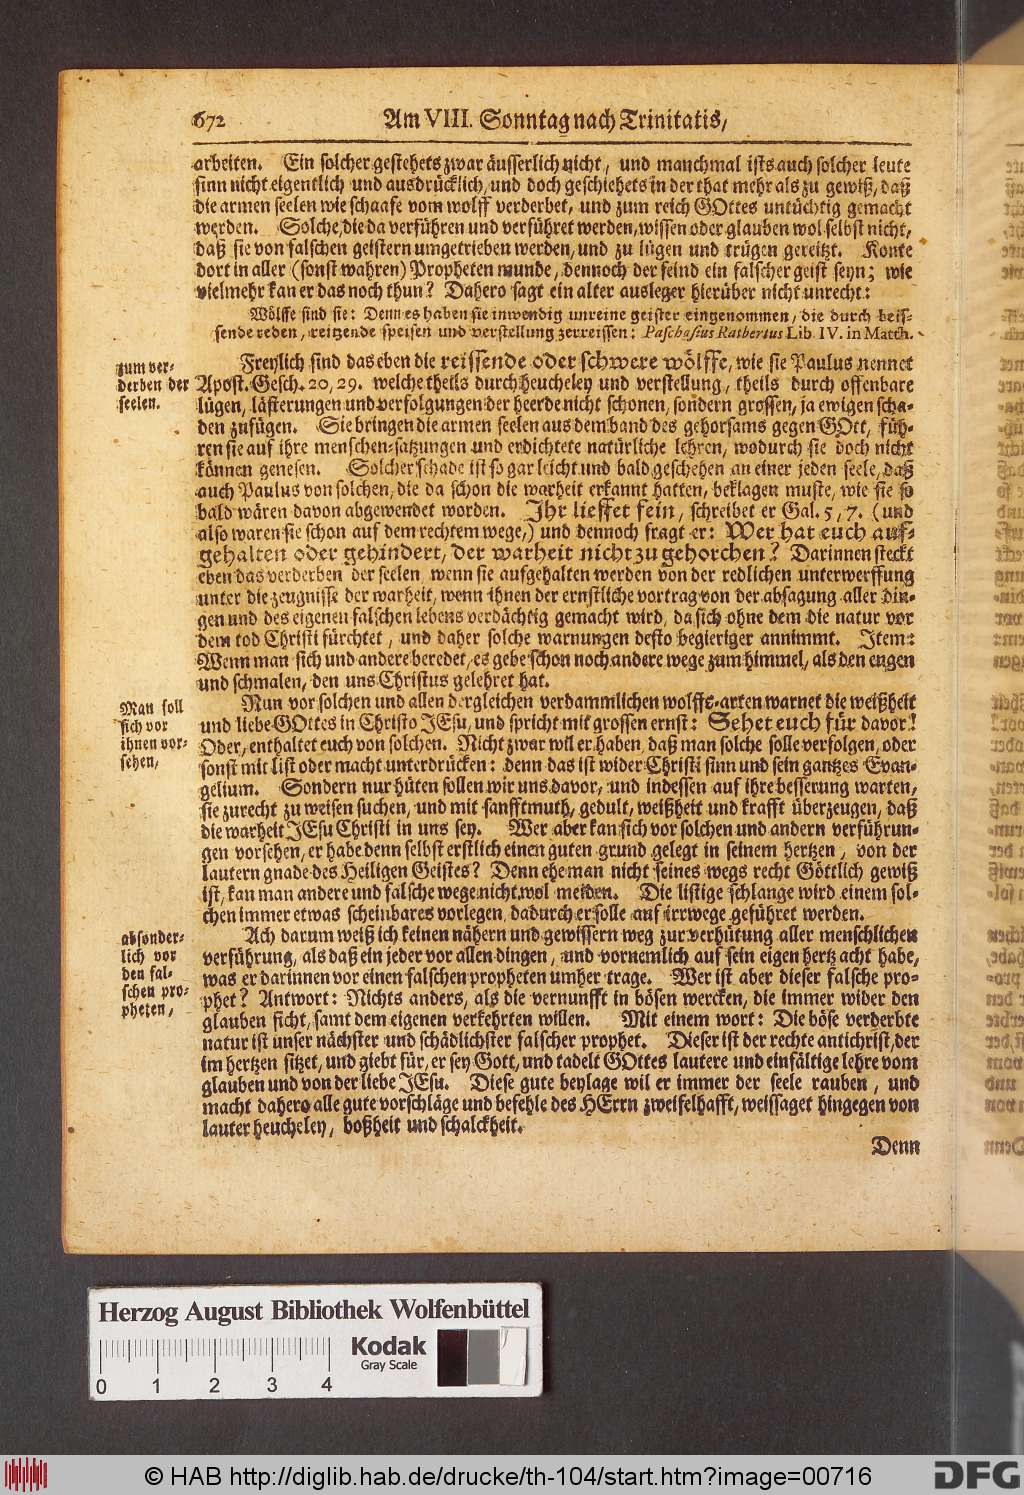 672
Am VIII. Sonntag nach Trinitatis,
arbeiten. Ein solcher gestehets zwar äusserlich nicht, und manchmal ists auch solcher leute
sinn nicht eigentlich und ausdrücklich, und doch geschiehets in der that mehr als zu gewiß, daß
die armen seelen wie schaafe vom wolff verderbet, und zum reich GOttes untüchtig gemacht
werden. Solche, die da verführen und verführet werden, wissen oder glauben wol selbst nicht,
daß sie von falschen geistern umgetrieben werden, und zu lügen und trügen gereitzt. Konte
dort in aller (sonst wahren) Propheten munde, dennoch der feind ein falscher geist seyn; wie
vielmehr kan er das noch thun? Dahero sagt ein alter ausleger hierüber nicht unrecht:
Wölffe sind sie: Denn es haben sie inwendig unreine geister eingenommen, die durch beis-
sende reden, reitzende speisen und verstellung zerreissen: Paschasius Ratbertus Lib. IV. in Matth.
zum ver-
derben der
seelen.
Freylich sind das eben die reissende oder schwere wölffe, wie sie Paulus nennet
Apost. Gesch. 20, 29. welche theils durch heucheley und verstellung, theils durch offenbare
lügen, lästerungen und verfolgungen der heerde nicht schonen, sondern grossen, ja ewigen scha-
den zufügen. Sie bringen die armen seelen aus dem band des gehorsams gegen GOtt, füh-
ren sie auf ihre menschen-satzungen und erdichtete natürliche lehren, wodurch sie doch nicht
können genesen. Solcher schade ist so gar leicht und bald geschehen an einer jeden seele, daß
auch Paulus von solchen, die da schon die warheit erkannt hatten, beklagen muste, wie sie so
bald wären davon abgewendet worden. Ihr lieffet fein, schreibet er Gal. 5, 7. (und
also waren sie schon auf dem rechtem wege,) und dennoch fragt er: Wer hat euch auf-
gehalten oder gehindert, der warheit nicht zu gehorchen? Darinnen steckt
eben das verderben der seelen, wenn sie aufgehalten werden von der redlichen unterwerffung
unter die zeugnisse der warheit, wenn ihnen der ernstliche vortrag von der absagung aller din-
gen und des eigenen falschen lebens verdächtig gemacht wird, da sich ohne dem die natur vor
dem tod Christi fürchtet, und daher solche warnungen desto begieriger annimmt. Item:
Wenn man sich und andere beredet, es gebe schon noch andere wege zum himmel, als den engen
und schmalen, den uns Christus gelehret hat.
Man soll
sich vor
ihnen vor-
sehen,
Nun vor solchen und allen dergleichen verdammlichen wolffs-arten warnet die weißheit
und liebe GOttes in Christo JEsu, und spricht mit grossen ernst: Sehet euch für davor!
Oder, enthaltet euch von solchen. Nicht zwar wil er haben, daß man solche solle verfolgen, oder
sonst mit list oder macht unterdrücken: denn das ist wider Christi sinn und sein gantzes Evan-
gelium. Sondern nur hüten sollen wir uns davor, und indessen auf ihre besserung warten,
sie zurecht zu weisen suchen, und mit sanfftmuth, gedult, weißheit und krafft überzeugen, daß
die warheit JEsu Christi in uns sey. Wer aber kan sich vor solchen und andern verführun-
gen vorsehen, er habe denn selbst erstlich einen guten grund gelegt in seinem hertzen, von der
lautern gnade des Heiligen Geistes? Denn ehe man nicht seines wegs recht Göttlich gewiß
ist, kan man andere und falsche wege nicht wol meiden. Die listige schlange wird einem sol-
chen immer etwas scheinbares vorlegen, dadurch er solle auf irrwege geführet werden.
absonder-
lich vor
den fal-
schen pro-
pheten,
Ach darum weiß ich keinen nähern und gewissern weg zur verhütung aller menschlichen
verführung, als daß ein jeder vor allen dingen, und vornemlich auf sein eigen hertz acht habe,
was er darinnen vor einen falschen propheten umher trage. Wer ist aber dieser falsche pro-
phet? Antwort: Nichts anders, als die vernunfft in bösen wercken, die immer wider den
glauben ficht, samt dem eigenen verkehrten willen. Mit einem wort: Die böse verderbte
natur ist unser nächster und schädlichster falscher prophet. Dieser ist der rechte antichrist, der
im hertzen sitzet, und giebt für, er sey Gott, und tadelt GOttes lautere und einfältige lehre vom
glauben und von der liebe JEsu. Diese gute beylage wil er immer der seele rauben, und
macht dahero alle gute vorschläge und befehle des HErrn zweifelhafft, weissaget hingegen von
lauter heucheley, boßheit und schalckheit.
Denn
Herzog August Bibliothek Wolfenbüttel
Kodak
Gray Scale
0 1 2 3 4
© HAB http://diglib.hab.de/drucke/th-104/start.htm?image=00716
DFG